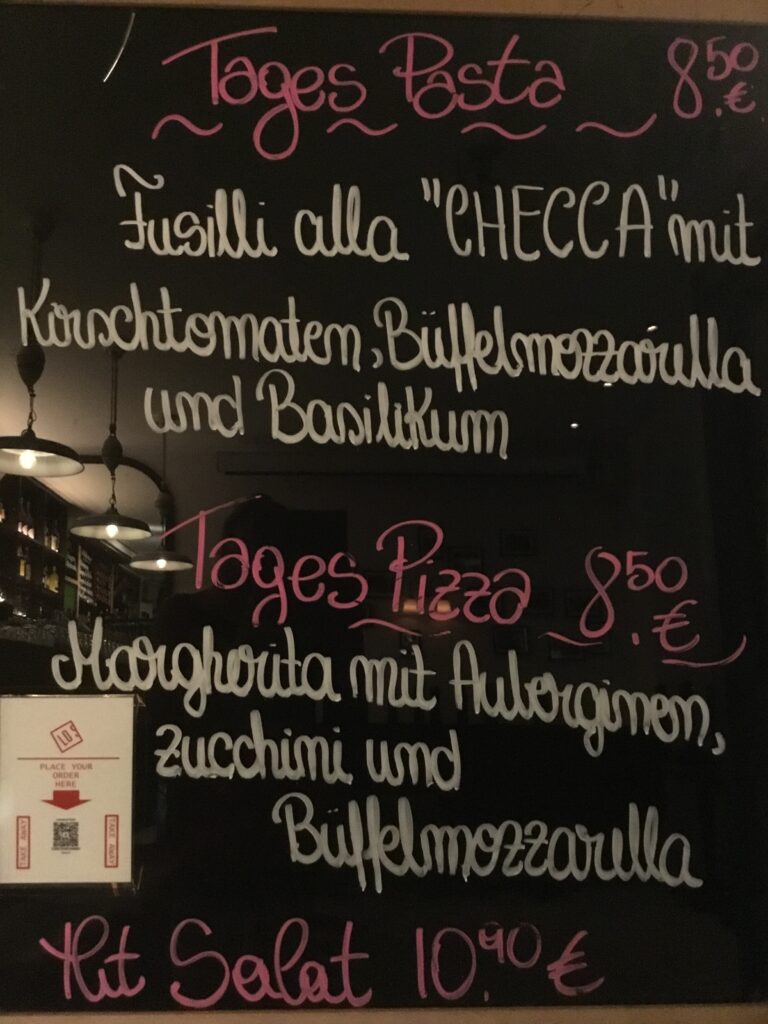 Tages Pasta 8.50 €
Fusilli alla "CHECCA" mit
Kirschtomaten, Büffelmozzarella
und Basilikum
Tages Pizza 8.50 €
Margherita mit Auberginen,
Zucchini und
Büffelmozzarella
Mit Salat 10.90 €
PLACE YOUR
ORDER
HERE
TAKE AWAY
TAKE AWAY